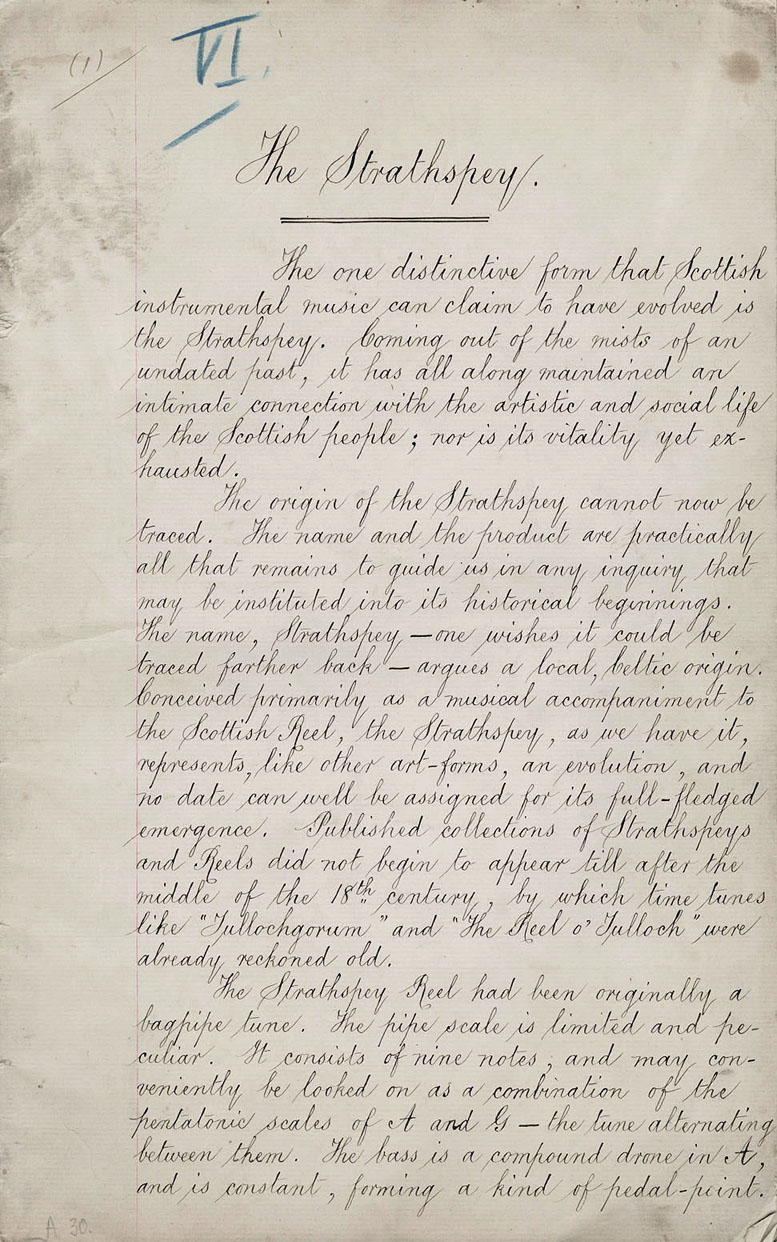 (1)
VI.
The Strathspey.
The one distinctive form that Scottish
instrumental music can claim to have evolved is
the Strathspey. Coming out of the mists of an
undated past, it has all along maintained an
intimate connection with the artistic and social life
of the Scottish people; nor is its vitality yet ex-
hausted.
The origin of the Strathspey cannot now be
traced. The name and the product are practically
all that remains to guide us in any inquiry that
may be instituted into its historical beginnings.
The name, Strathspey, — one wishes it could be
traced farther back — argues a local, Celtic origin.
Conceived primarily as a musical accompaniment to
the Scottish Reel, the Strathspey, as we have it,
represents, like other art-forms, an evolution, and
no date can well be assigned for its full-fledged
emergence. Published collections of Strathspeys
and Reels did not begin to appear till after the
middle of the 18th century, by which time tunes
like "Tullochgorum" and "The Reel o' Tulloch" were
already reckoned old.
The Strathspey Reel had been originally a
bagpipe tune. The pipe scale is limited and pe-
culiar. It consists of nine notes, and may con-
veniently be looked on as a combination of the
pentatonic scales of A and G — the tune alternating
between them. The bass is a compound drone in A,
and is constant, forming a kind of pedal-point.
A 30.